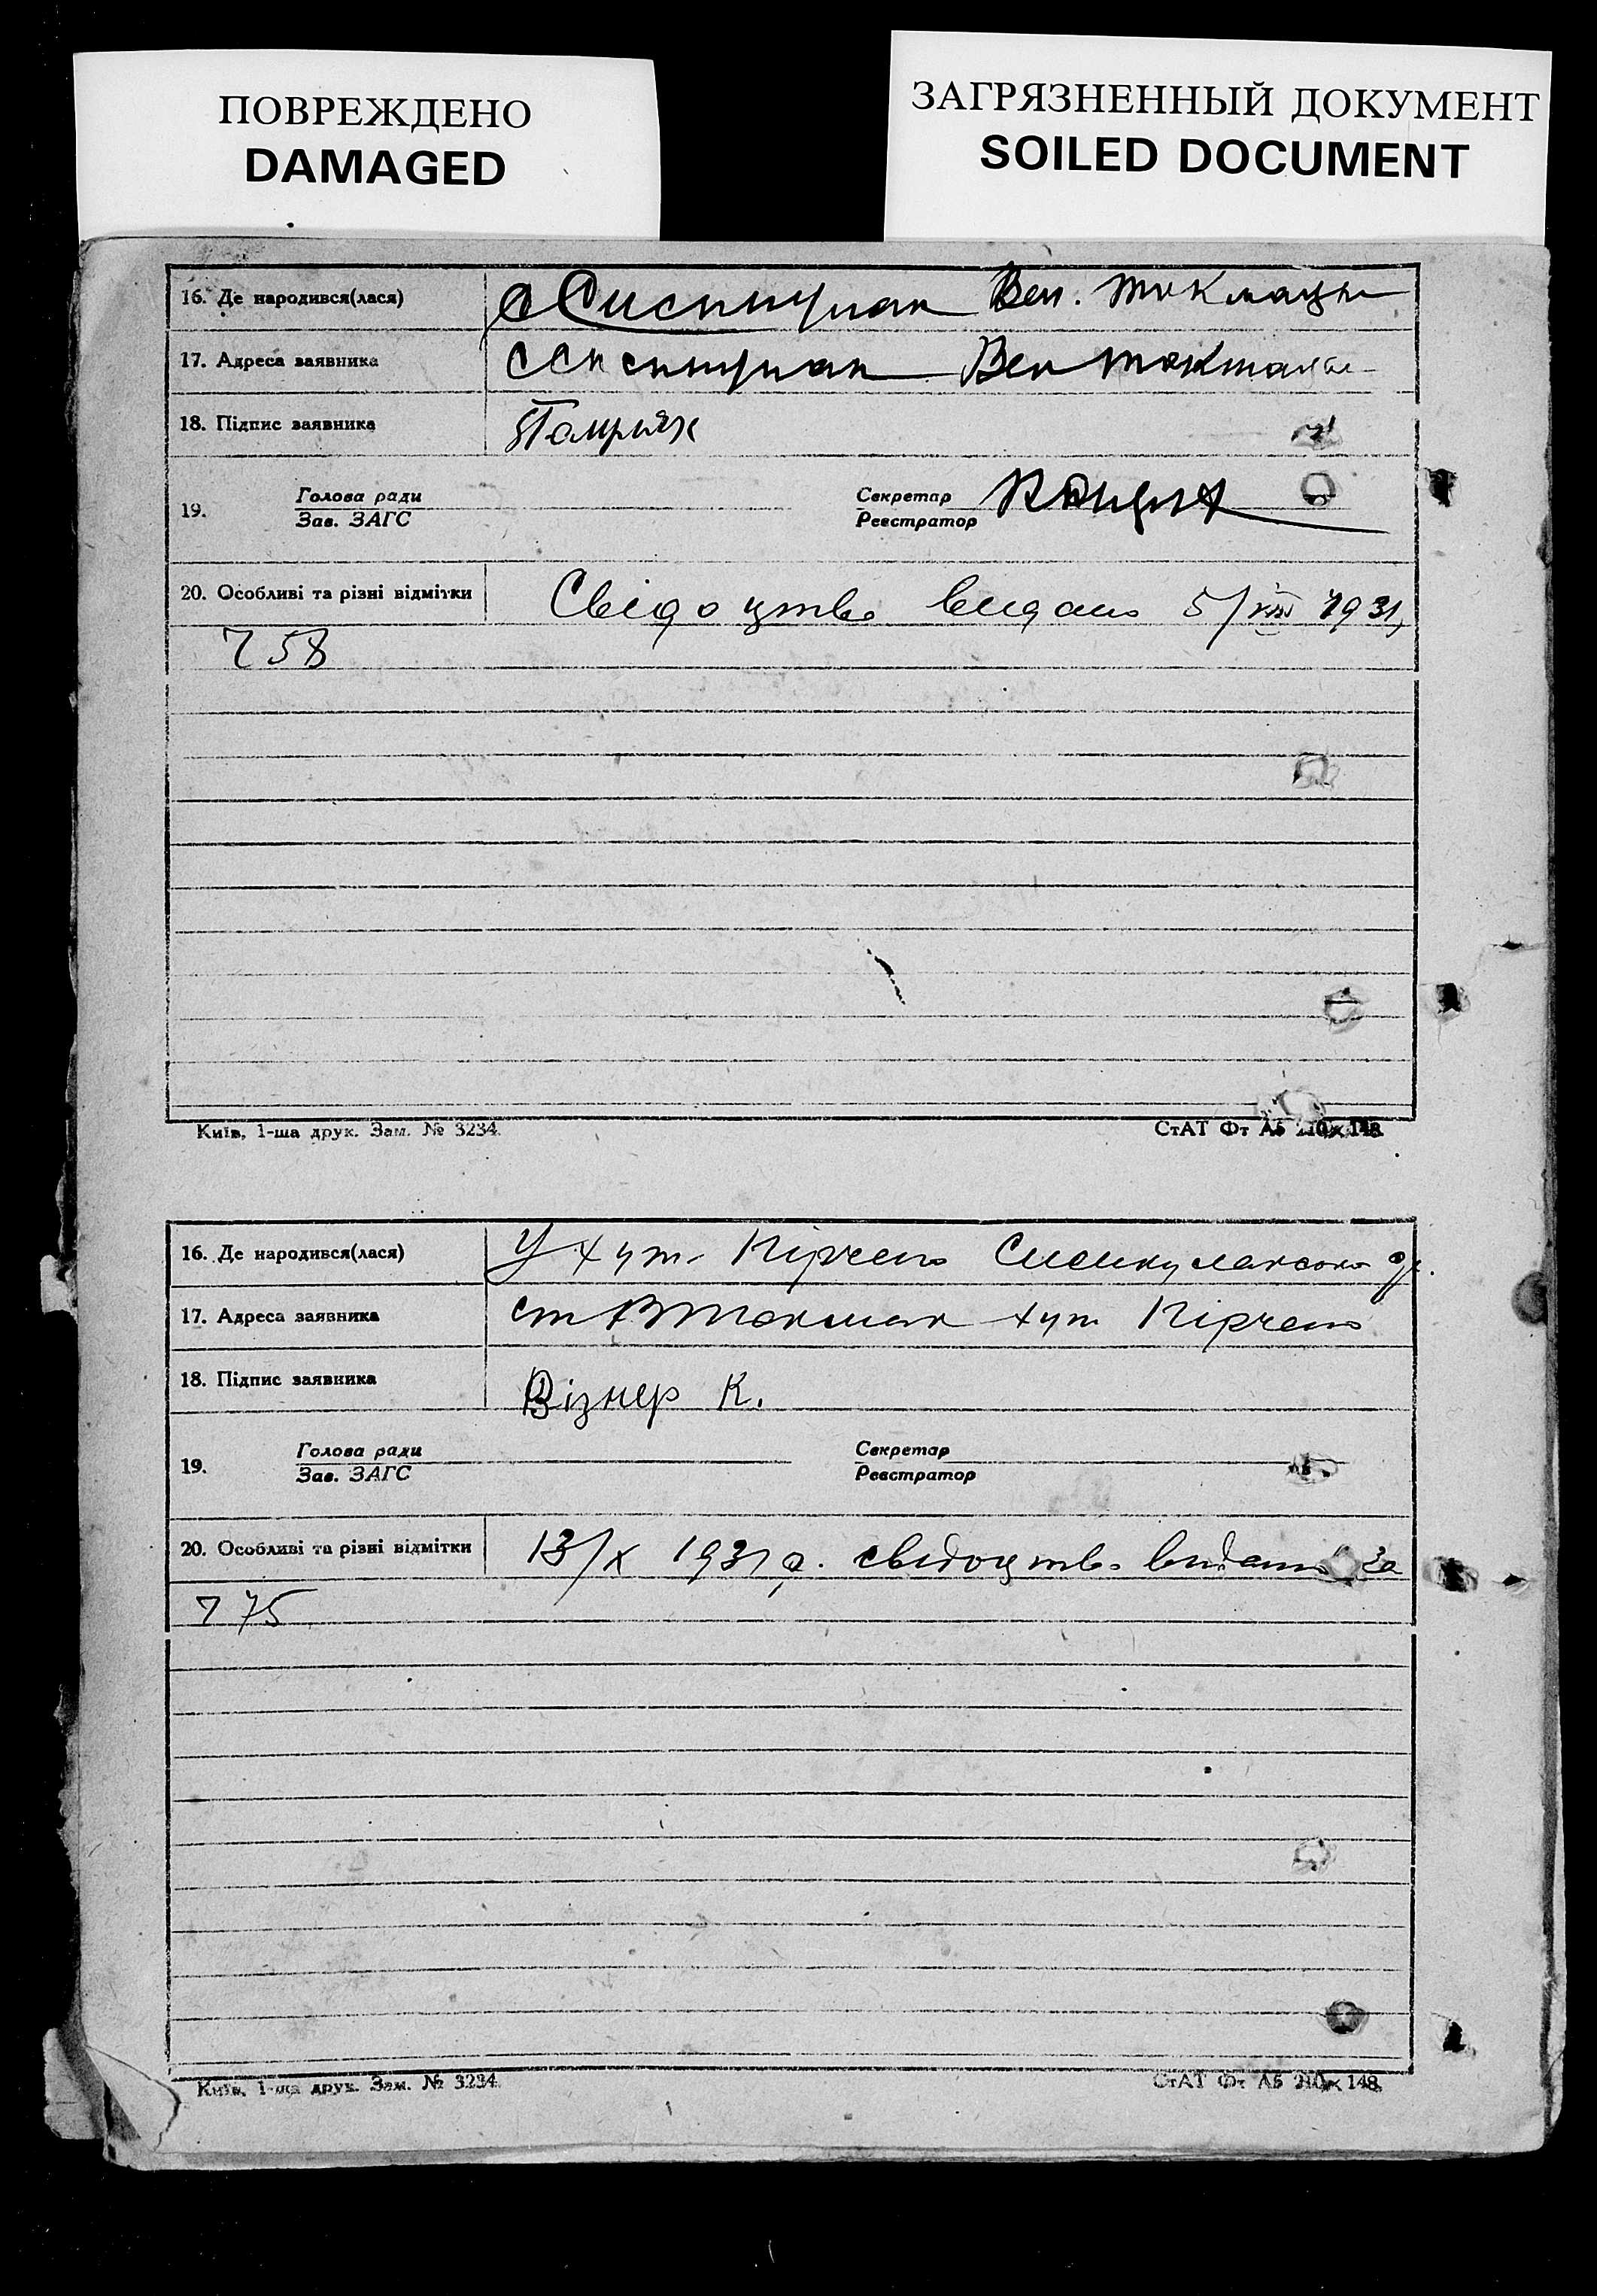 ПОВРЕЖДЕНО
DAMAGED
ЗАГРЯЗНЕННЫЙ ДОКУМЕНТ
SOILED DOCUMENT
16. Де народився(лася) Вел.
17. Адреса заявника Вел
18. Підпис заявника
19. Голова ради Секретар
Зав. ЗАГС Реєстратор
20. Особливі та різні відмітки Свідоцтво видано 5/VIII 1931
758
Київ, 1-ша друк. Зам. № 3234. СтАТ Фт А5 210×148.
16. Де народився(лася) У хут.
17. Адреса заявника ст В Токмак хут
18. Підпис заявника Візнер К.
19. Голова ради Секретар
Зав. ЗАГС Реєстратор
20. Особливі та різні відмітки 13/X 1931 р. свідоцтво видано за
775
Київ, 1-ша друк. Зам. № 3234. СтАТ Фт А5 210×148.